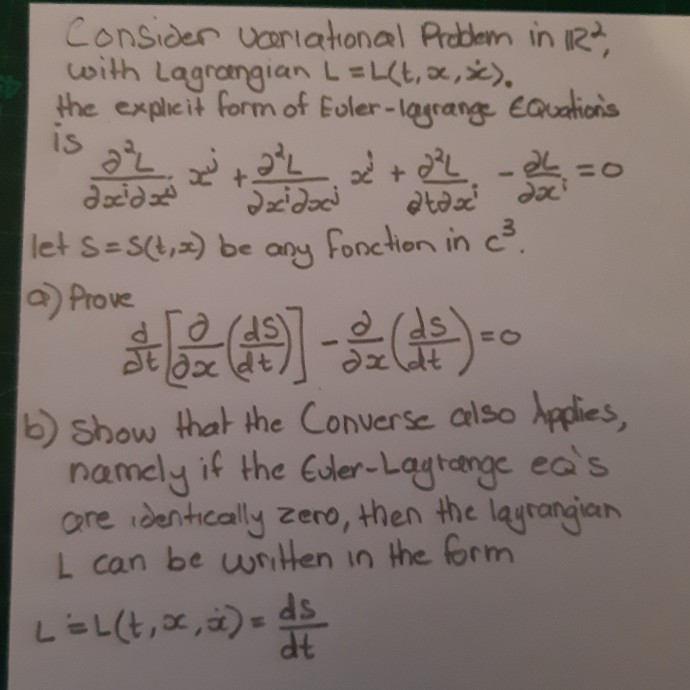 Consider variational Problem in ℝ²,
with Lagrangian L = L(t, x, ẋ).
the explicit form of Euler-lagrange EQuation's
is
∂²L/∂xⁱ∂xʲ xʲ + ∂²L/∂xⁱ∂xʲ xʲ + ∂²L/∂t∂xⁱ - ∂L/∂xⁱ = 0
let S = S(t, x) be any function in c³.
a) Prove
d/dt [∂/∂x (ds/dt)] - ∂/∂x (ds/dt) = 0
b) Show that the Converse also Applies,
namely if the Euler-Lagrange eq's
are identically zero, then the lagrangian
L can be written in the form
L = L(t, x, ẋ) = ds/dt